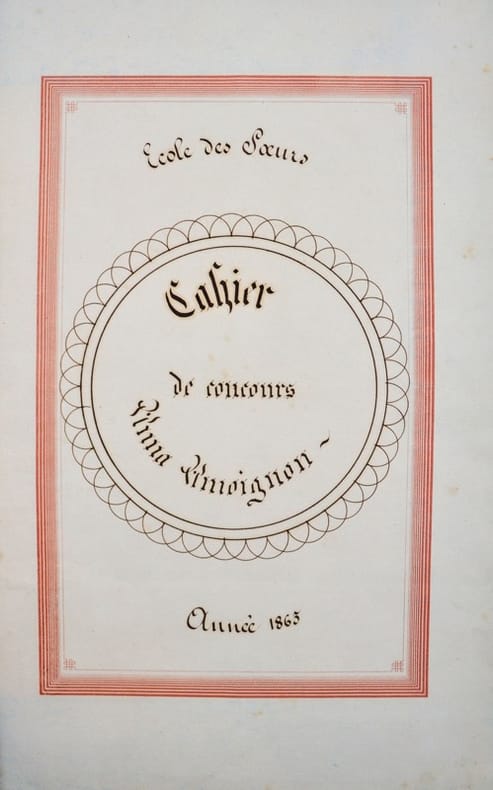 Ecole des Sœurs
Cahier
de concours
Anna Amoignon
Année 1863